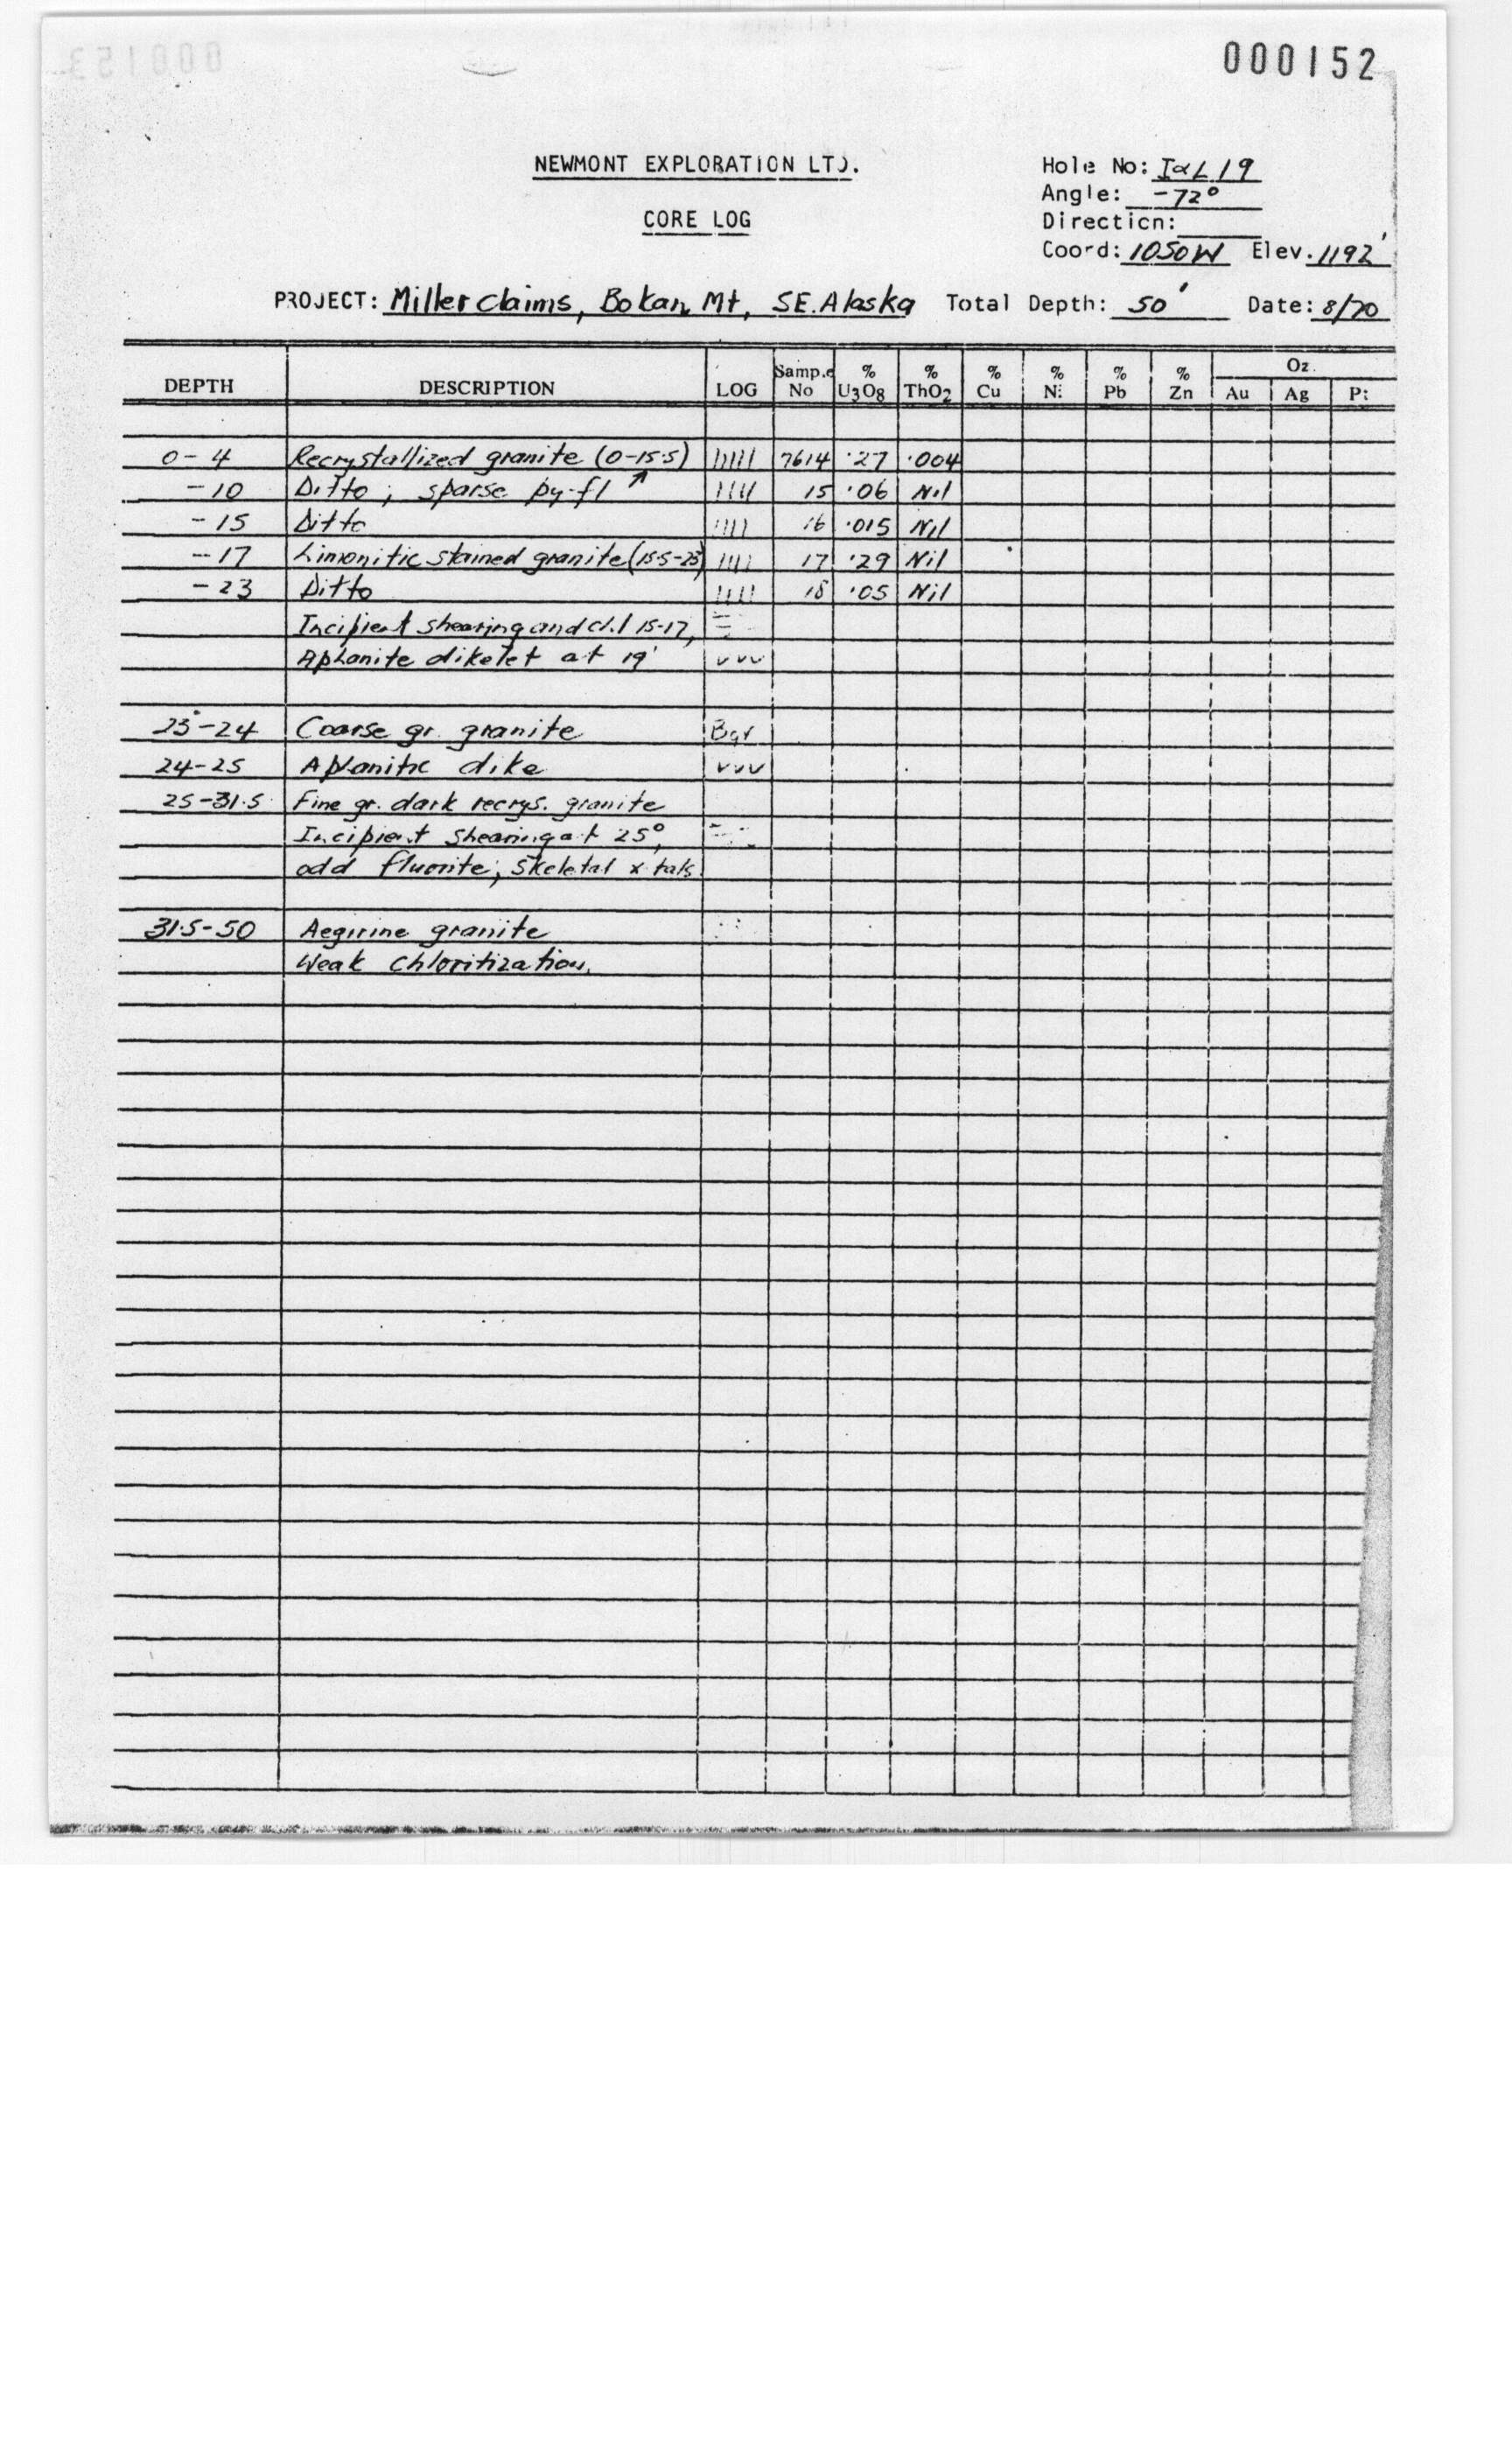 000152
000153
NEWMONT EXPLORATION LTD.
CORE LOG
Hole No: I∝L 19
Angle: -72°
Direction:
Coord: 1050W Elev. 1192'
PROJECT: Miller claims, Bokan Mt, SE. Alaska Total Depth: 50' Date: 8/70
DEPTH DESCRIPTION LOG Sample No % U3O8 % ThO2 % Cu % Ni % Pb % Zn Oz. Au Ag Pt
0-4 Recrystallized granite (0-15.5) 7614 .27 .004
-10 Ditto; sparse py-fl ↗ 15 .06 Nil
-15 Ditto 16 .015 Nil
-17 Limonitic stained granite (15.5-23) 17 .29 Nil
-23 Ditto 18 .05 Nil
Incipient shearing and chl 15-17,
Aphanite dikelet at 19' vvv
23-24 Coarse gr. granite Bgr
24-25 Aphanitic dike vvv
25-31.5 Fine gr. dark recrys. granite
Incipient shearing at 25°,
odd fluorite; skeletal xtals.
31.5-50 Aegirine granite
Weak chloritization.